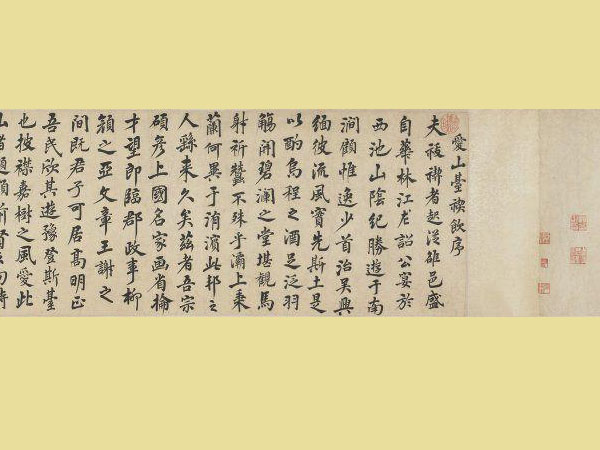 愛山臺禊飲序
夫祓禊者起從雒邑盛
自華林江左詔公宴於
西池山陰紀勝遊于南
澗顧惟逸少首治吳興
緬彼流風實先斯土是
以酌烏程之酒足泛羽
觴開碧瀾之堂堪觀馬
射祈蠶不殊乎灞上乘
蘭何異于洧濱此邦之
人繇來久矣茲者吾宗
碩彥上國名家畫省掄
才望郎臨郡政事柳
潁之亞文章王謝之
間既君子可居高明正
吾民欣其遊豫登斯臺
也披襟嘉樹之風愛此